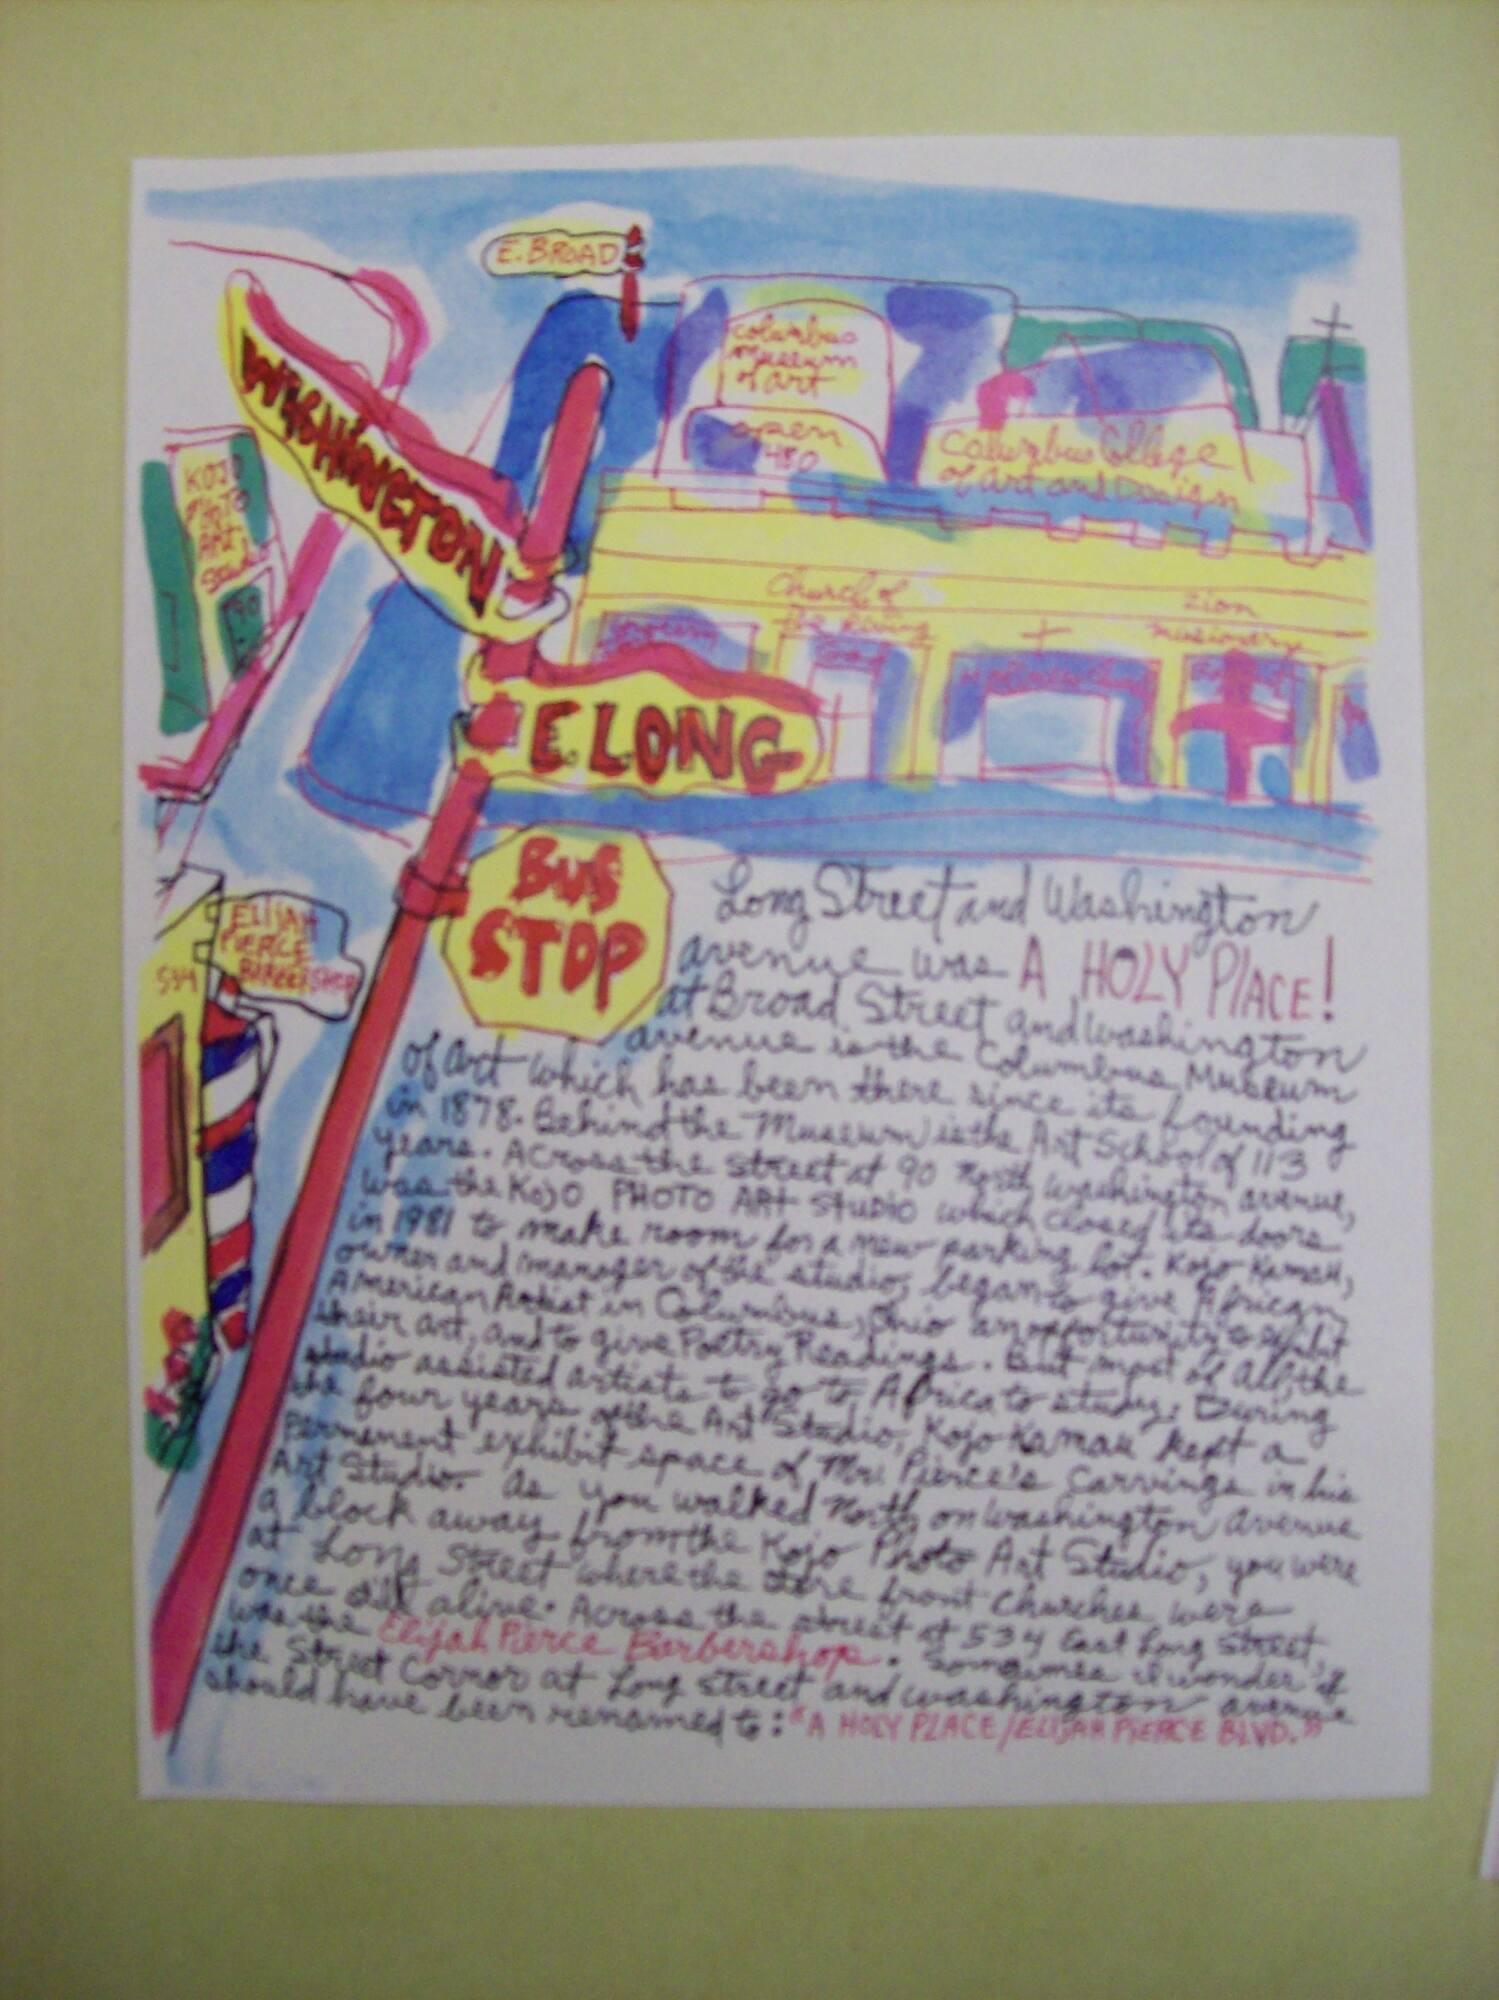 E. BROAD
WASHINGTON
columbus
museum
of art
open
480
Columbus College
of Art and Design
KOJO
PHOTO
ART
90
Church of
the
Zion
Missionary
E. LONG
BUS
STOP
ELIJAH
PIERCE
BARBERSHOP
534
Long Street and Washington
avenue was A HOLY PLACE!
at Broad Street and Washington
avenue is the Columbus Museum
of Art which has been there since its founding
in 1878. Behind the Museum is the Art School of 113
years. Across the street at 90 North Washington avenue,
was the KOJO PHOTO ART STUDIO which closed its doors
in 1981 to make room for a new parking lot. Kojo Kamau,
owner and manager of the studio, began to give African
American Artist in Columbus, Ohio an opportunity to exhibit
their art, and to give Poetry Readings. But most of all, the
studio assisted artists to go to Africa to study. During
the four years of the Art Studio, Kojo Kamau kept a
permenent exhibit space of Mr. Pierce's Carvings in his
Art Studio. As you walked North on Washington Avenue
a block away from the Kojo Photo Art Studio, you were
at Long Street where the store front Churches were
once still alive. Across the street at 534 East Long Street,
was the Elijah Pierce Barbershop. Sometimes I wonder if
the Street Corner at Long Street and Washington avenue
should have been renamed to: "A HOLY PLACE/ELIJAH PIERCE BLVD."